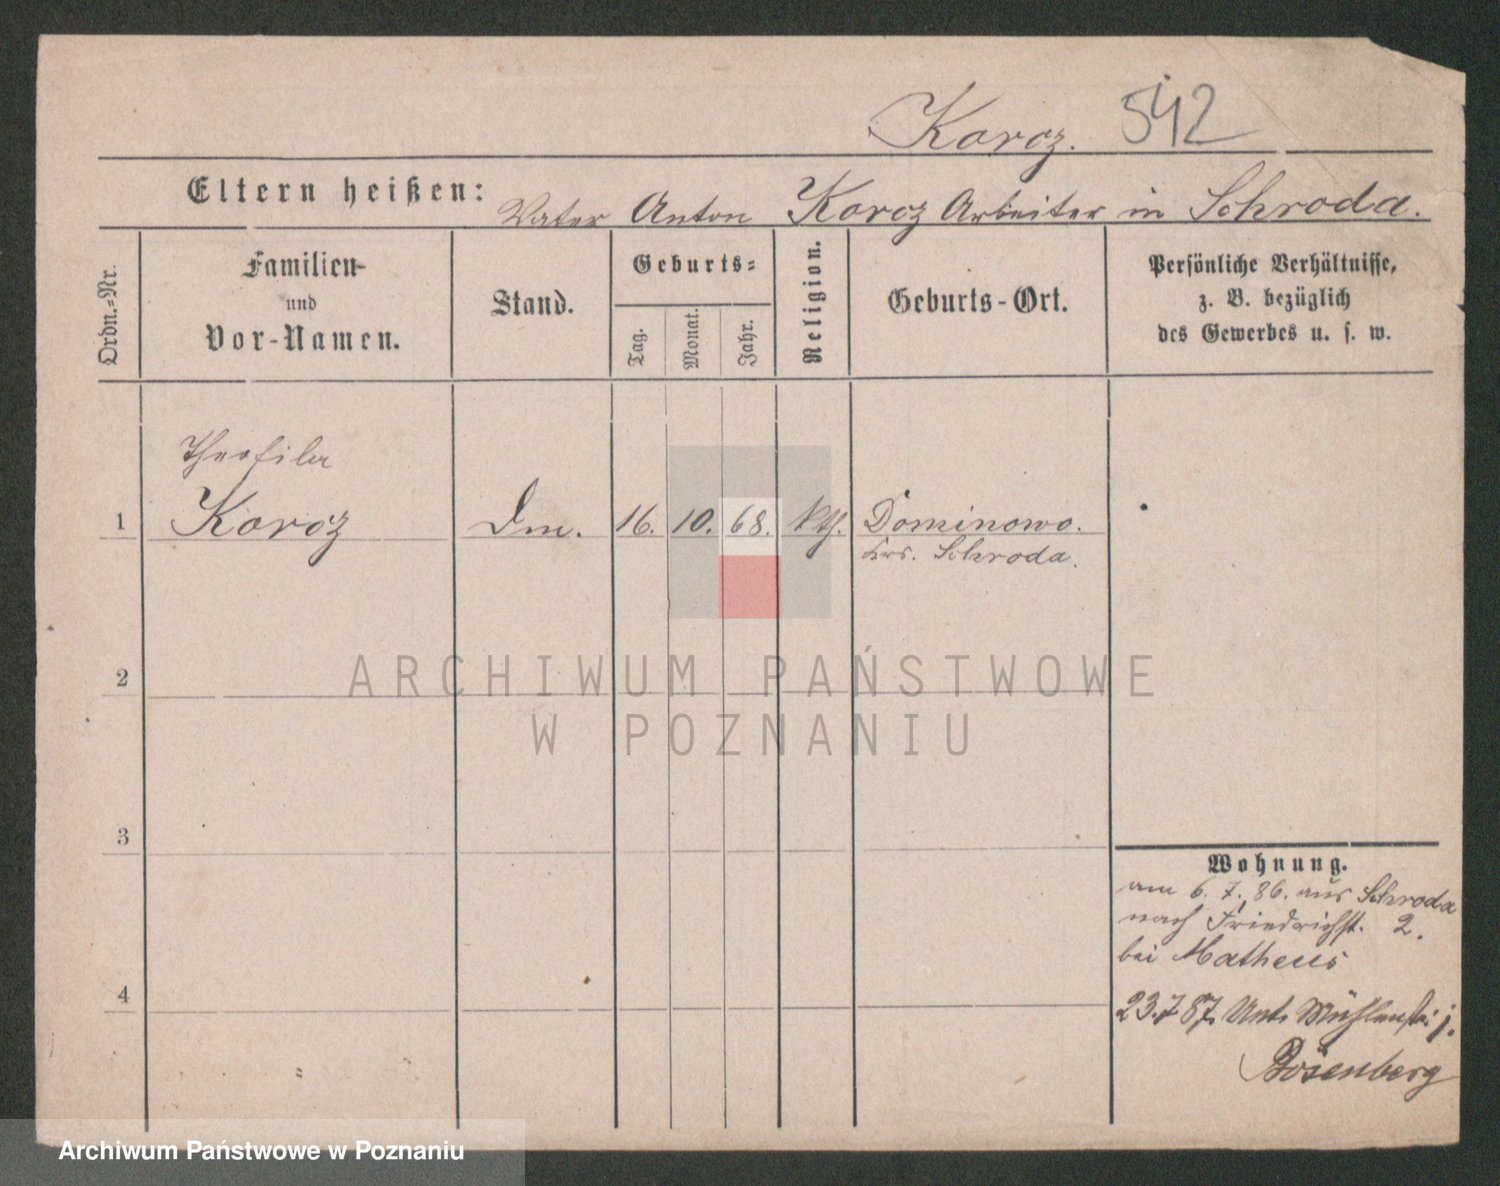 Korcz. 542
Eltern heißen: Vater Anton Korcz Arbeiter in Schroda.
Ordn.-Nr.
Familien-
und
Vor-Namen.
Stand.
Geburts-
Tag.
Monat.
Jahr.
Religion.
Geburts-Ort.
Persönliche Verhältnisse,
z. B. bezüglich
des Gewerbes u. s. w.
Theofila
1 Korcz Dm. 16. 10. 68. kth. Dominowo.
Krs. Schroda.
2
3
4
Wohnung.
am 6. 7. 86. aus Schroda
nach Friedrichst. 2.
bei Matheus
23.7.87. Unt. Mühlenstr.
Rosenberg
ARCHIWUM PAŃSTWOWE
W POZNANIU
Archiwum Państwowe w Poznaniu